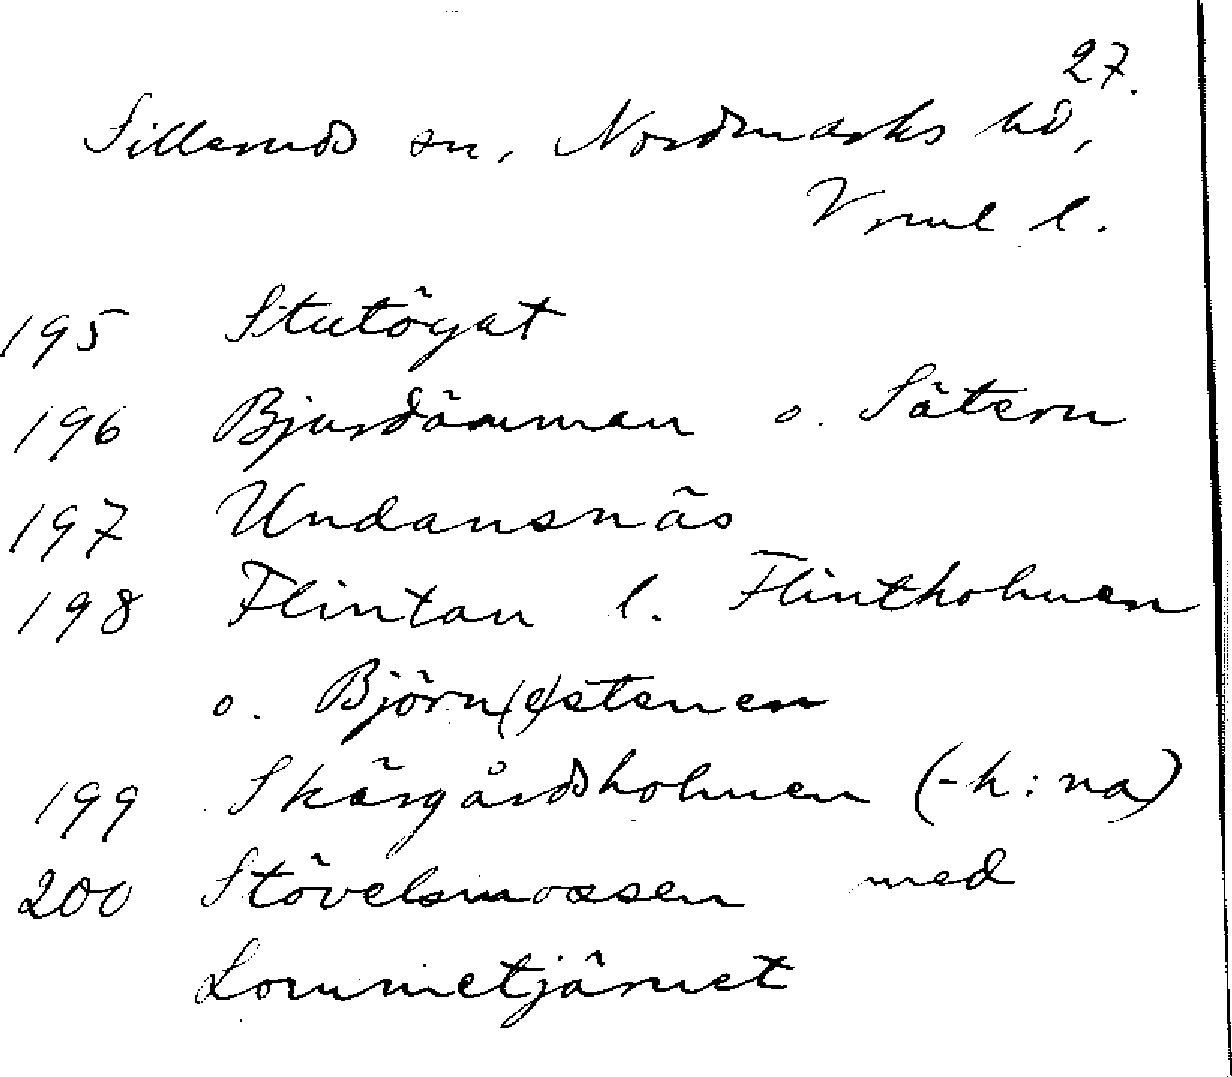 27.
Silleruds sn, Nordmarks hd,
Vrml l.
195 Stutögat
196 Bjurdämman o. Sätern
197 Undansnäs
198 Flintan l. Flintholmen
o. Björn(e)stenen
199 Skärgårdsholmen (-h:na)
200 Stövelsmossen med
Lommetjärnet